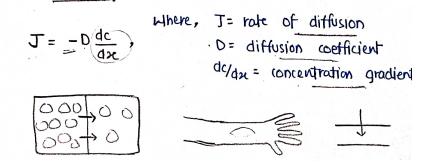 J = -D dc/dx,
where, J = rate of diffusion
D = diffusion coefficient
dc/dx = concentration gradient